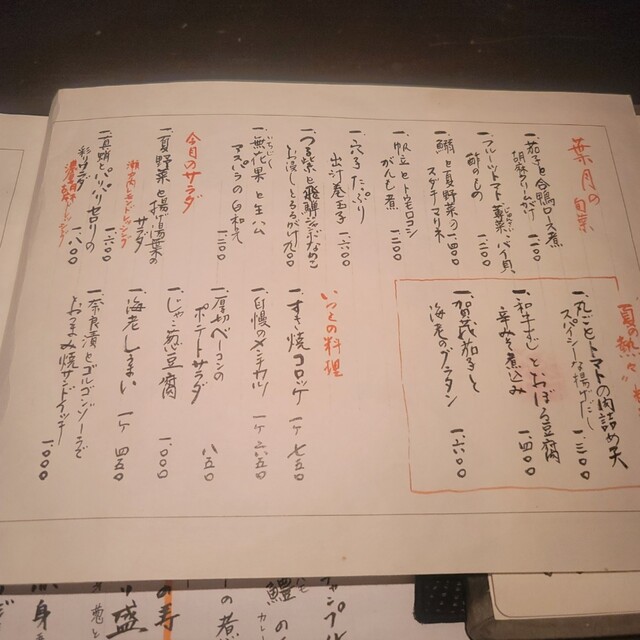 葉月の旬菜
一、茄子と合鴨ロース煮
胡麻クリームがけ 一、二〇〇
一、フルーツトマト 蓴菜 バイ貝
酢のもの 一、二〇〇
一、鱧と夏野菜の
スダチマリネ 一、四〇〇
一、帆立とトウモロコシ
がんも煮 一、二〇〇
一、穴子たっぷり
出汁巻玉子 一、六〇〇
一、つる紫と飛騨ジャンボなめこ
お浸しとろろがけ 九〇〇
一、無花果と生ハム
いちじく
アスパラの白和え 一、二〇〇
今月のサラダ
一、夏野菜と揚げ湯葉の
サラダ
瀬戸内レモンドレッシング 一、六〇〇
一、真蛸とパリパリゼロリの
彩りサラダ 一、八〇〇
夏の熱々
一、丸ごとトマトの肉詰め天
スパイシーな揚げだし 一、三〇〇
一、和牛すじとおぼろ豆腐
辛みそ煮込み 一、四〇〇
一、賀茂茄子と
海老のグラタン 一、六〇〇
いつもの料理
一、すき焼コロッケ 一ケ 七五〇
一、自慢のメンチカツ 一ケ 六五〇
一、厚切ベーコンの
ポテートサラダ 八五〇
一、じゃこ葱豆腐 一、〇〇〇
一、海老しうまい 一ケ 四五〇
一、奈良漬とゴルゴンゾーラで
おつまみ焼サンドイッチ 一、〇〇〇
チャンプル
鱧の
の煮
の寿
盛
身